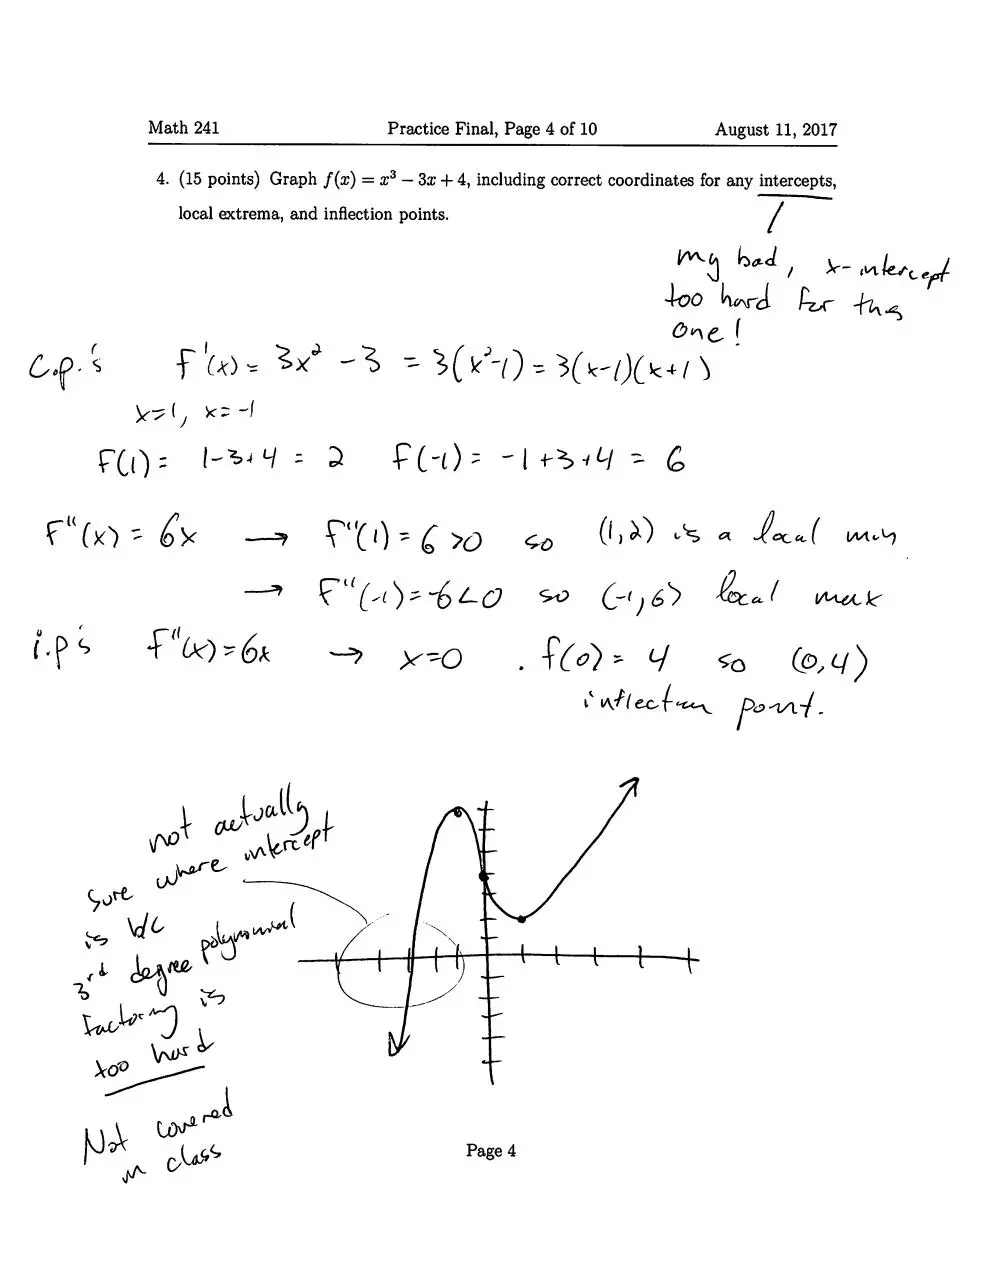 Math 241 Practice Final, Page 4 of 10 August 11, 2017
4. (15 points) Graph f(x) = x³ − 3x + 4, including correct coordinates for any intercepts,
local extrema, and inflection points.
my bad, x-intercept
too hard for this
one!
c.p.'s f'(x) = 3x² - 3 = 3(x²-1) = 3(x-1)(x+1)
x=1, x=-1
f(1) = 1-3+4 = 2 f(-1) = -1+3+4 = 6
f"(x) = 6x → f"(1) = 6 >0 so (1,2) is a local min
→ f"(-1) = -6<0 so (-1,6) local max
i.p's f"(x) = 6x → x=0 . f(0) = 4 so (0,4)
inflection point.
not actually
sure where intercept
is b/c
3rd degree polynomial
factoring is
too hard
Not covered
in class
Page 4